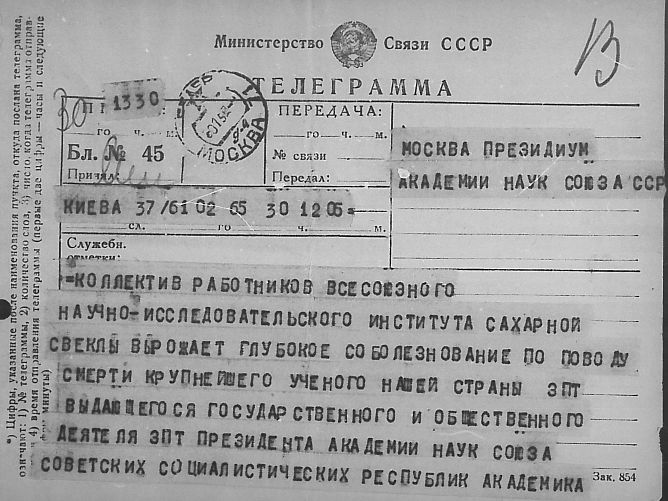 Министерство Связи СССР
ТЕЛЕГРАММА
13
1330
30
го ч. м.
Бл. № 45
МОСКВА
ПЕРЕДАЧА:
го ч. м.
№ связи
Передал:
МОСКВА ПРЕЗИДИУМ
АКАДЕМИИ НАУК СОЮЗА ССР
КИЕВА 37/61 02 65 30 1205=
сл. го ч. м.
Служебн.
отметки:
=КОЛЛЕКТИВ РАБОТНИКОВ ВСЕСОЮЗНОГО
НАУЧНО-ИССЛЕДОВАТЕЛЬСКОГО ИНСТИТУТА САХАРНОЙ
СВЕКЛЫ ВЫРОЖАЕТ ГЛУБОКОЕ СОБОЛЕЗНОВАНИЕ ПО ПОВОДУ
СМЕРТИ КРУПНЕЙШЕГО УЧЕНОГО НАШЕЙ СТРАНЫ ЗПТ
ВЫДАЮЩЕГОСЯ ГОСУДАРСТВЕННОГО И ОБЩЕСТВЕННОГО
ДЕЯТЕЛЯ ЗПТ ПРЕЗИДЕНТА АКАДЕМИИ НАУК СОЮЗА
СОВЕТСКИХ СОЦИАЛИСТИЧЕСКИХ РЕСПУБЛИК АКАДЕМИКА
Зак. 854
*) Цифры, указанные после наименования пункта, откуда послана телеграмма,
означают: 1) № телеграммы, 2) количество слов, 3) число, когда телеграмма отправ-
4) время отправления телеграммы (первые две цифры — часы и следующие
минуты)